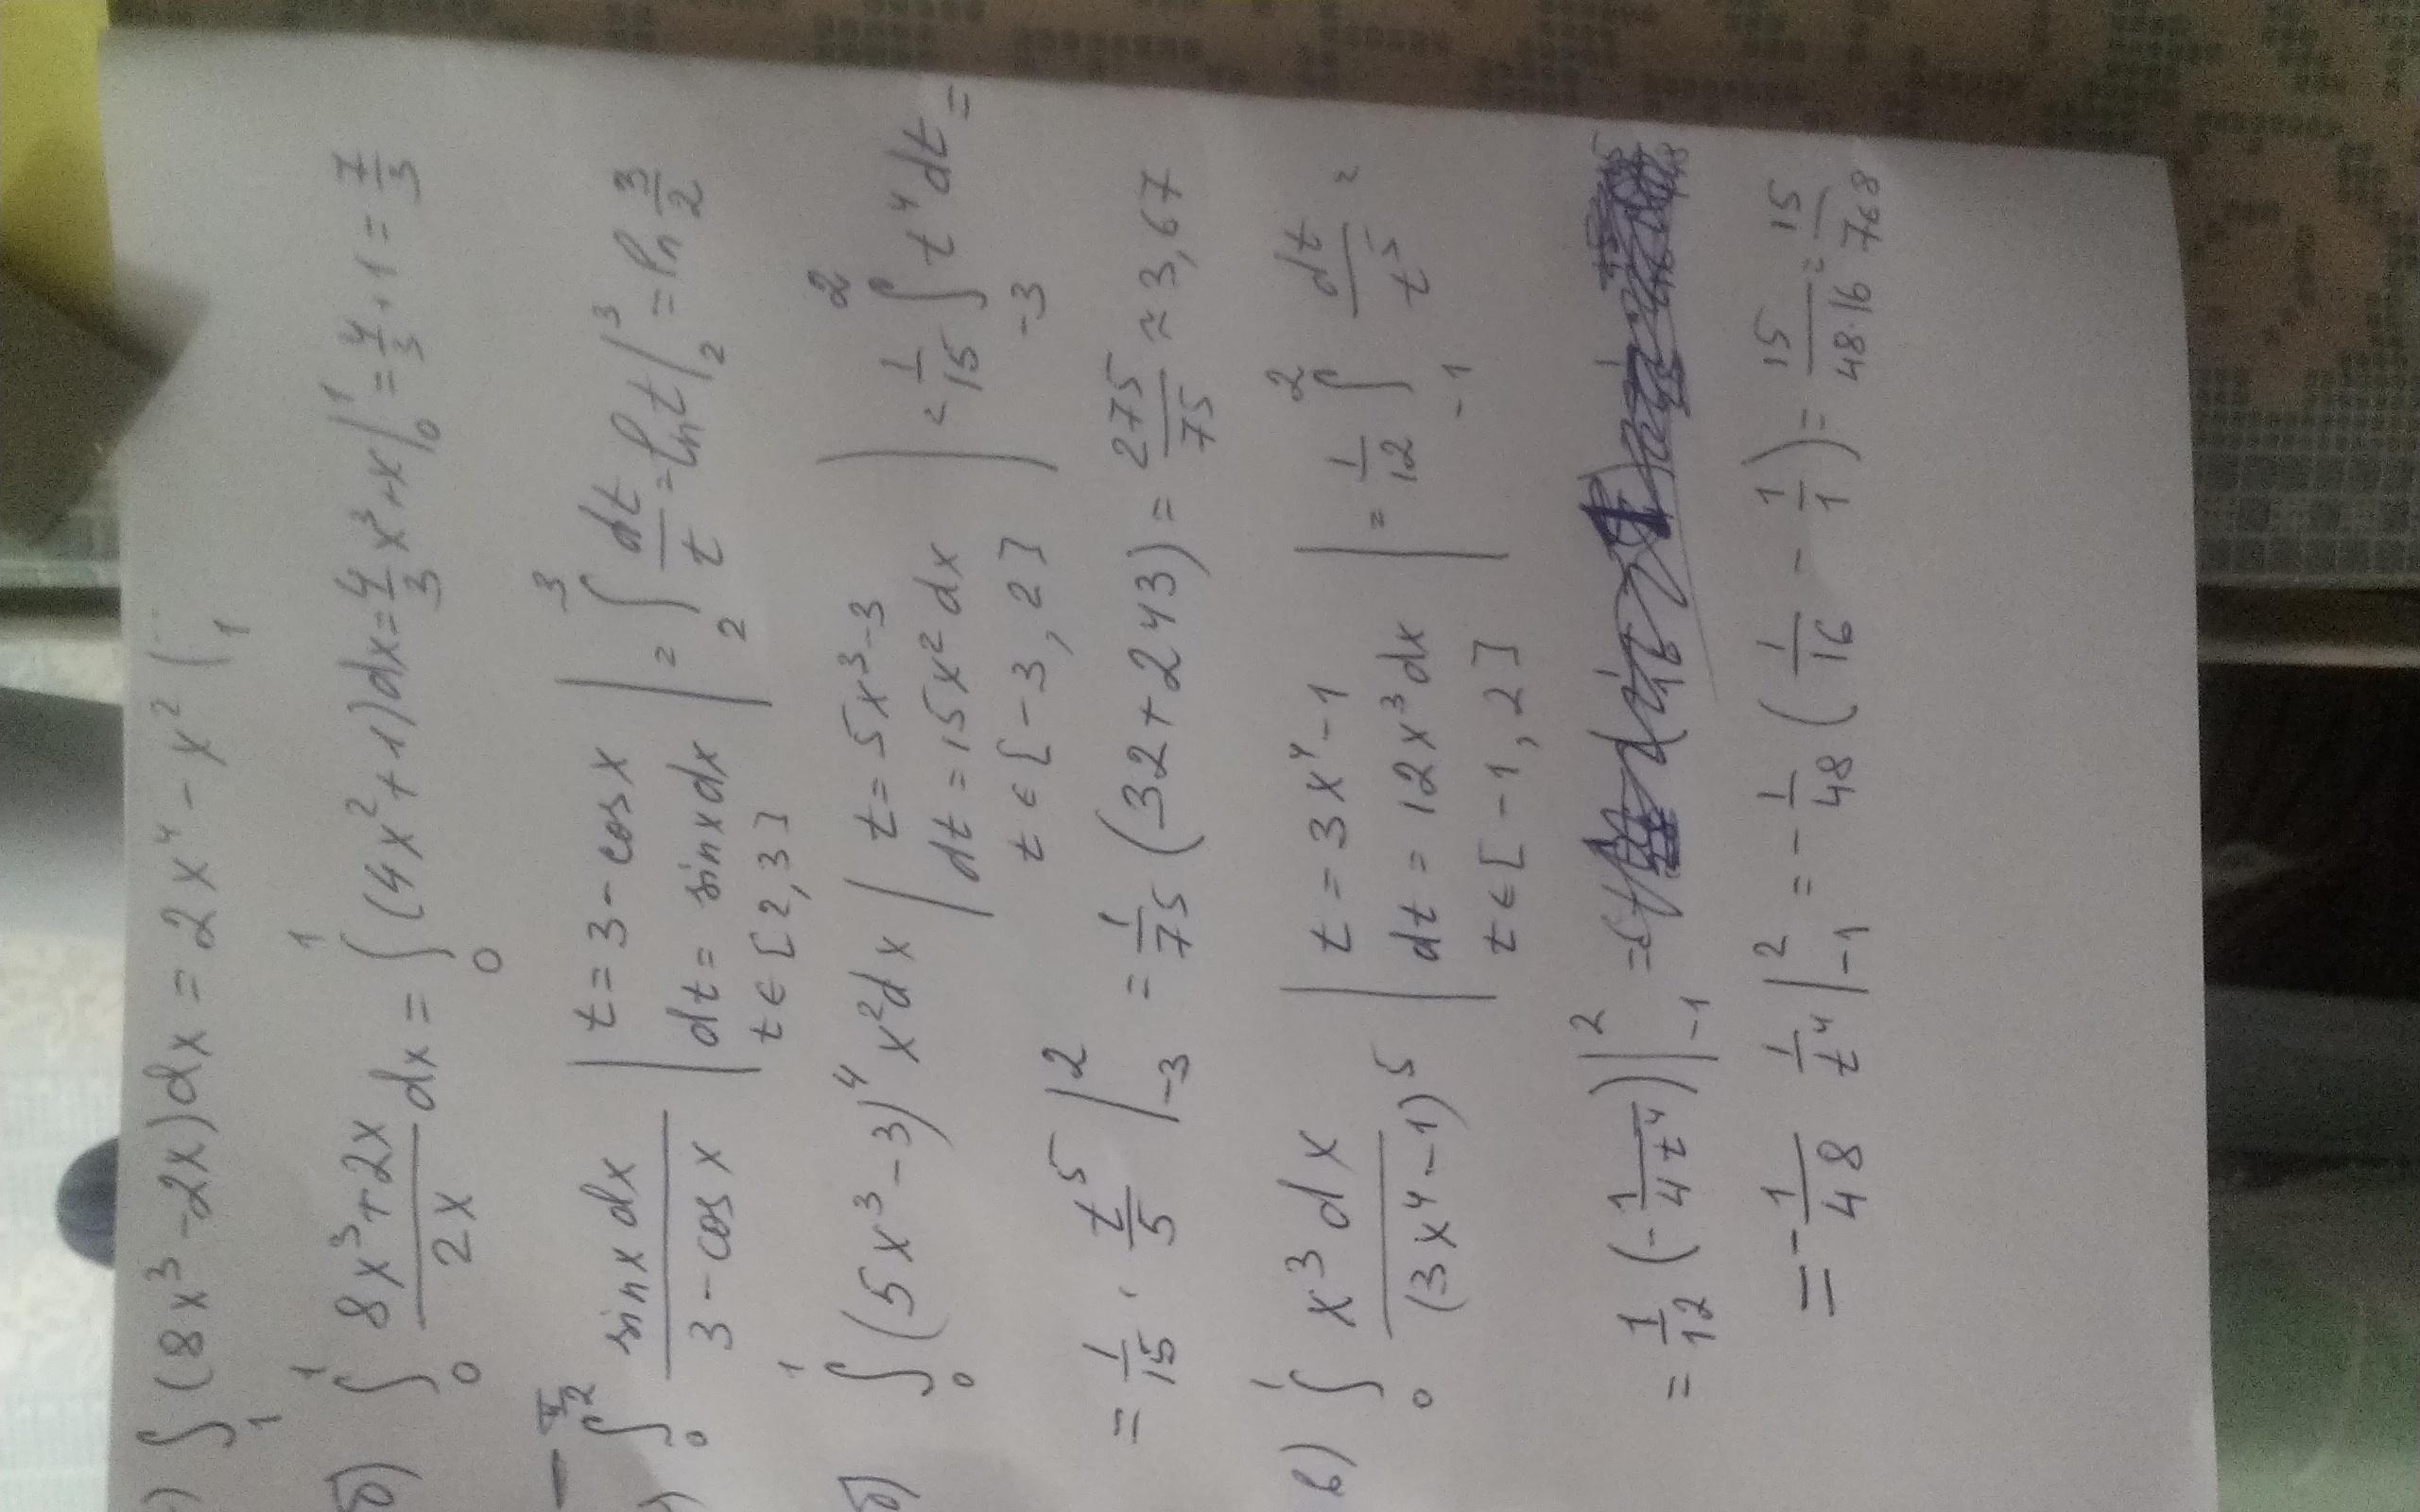 ) ∫₁ (8x³-2x)dx = 2x⁴ - x² |₁
б) ∫₀¹ (8x³+2x)/(2x) dx = ∫₀¹ (4x²+1)dx = 4/3 x³+x |₀¹ = 4/3 + 1 = 7/3
) ∫₀^(π/2) sinx dx/(3-cos x) | t = 3-cos x dt = sinx dx t ∈ [2,3] | = ∫₂³ dt/t = ln t |₂³ = ln 3/2
б) ∫₀¹ (5x³-3)⁴ x²dx | t = 5x³-3 dt = 15x² dx t ∈ [-3, 2] | = 1/15 ∫₋₃² t⁴ dt =
= 1/15 · t⁵/5 |₋₃² = 1/75 (32+243) = 275/75 ≈ 3,67
в) ∫₀¹ x³ dx/(3x⁴-1)⁵ | t = 3x⁴-1 dt = 12x³ dx t ∈ [-1, 2] | = 1/12 ∫₋₁² dt/t⁵ =
= 1/12 (-1/(4t⁴)) |₋₁² =
= -1/48 1/t⁴ |₋₁² = -1/48 (1/16 - 1/1) = 15/(48·16) = 15/768